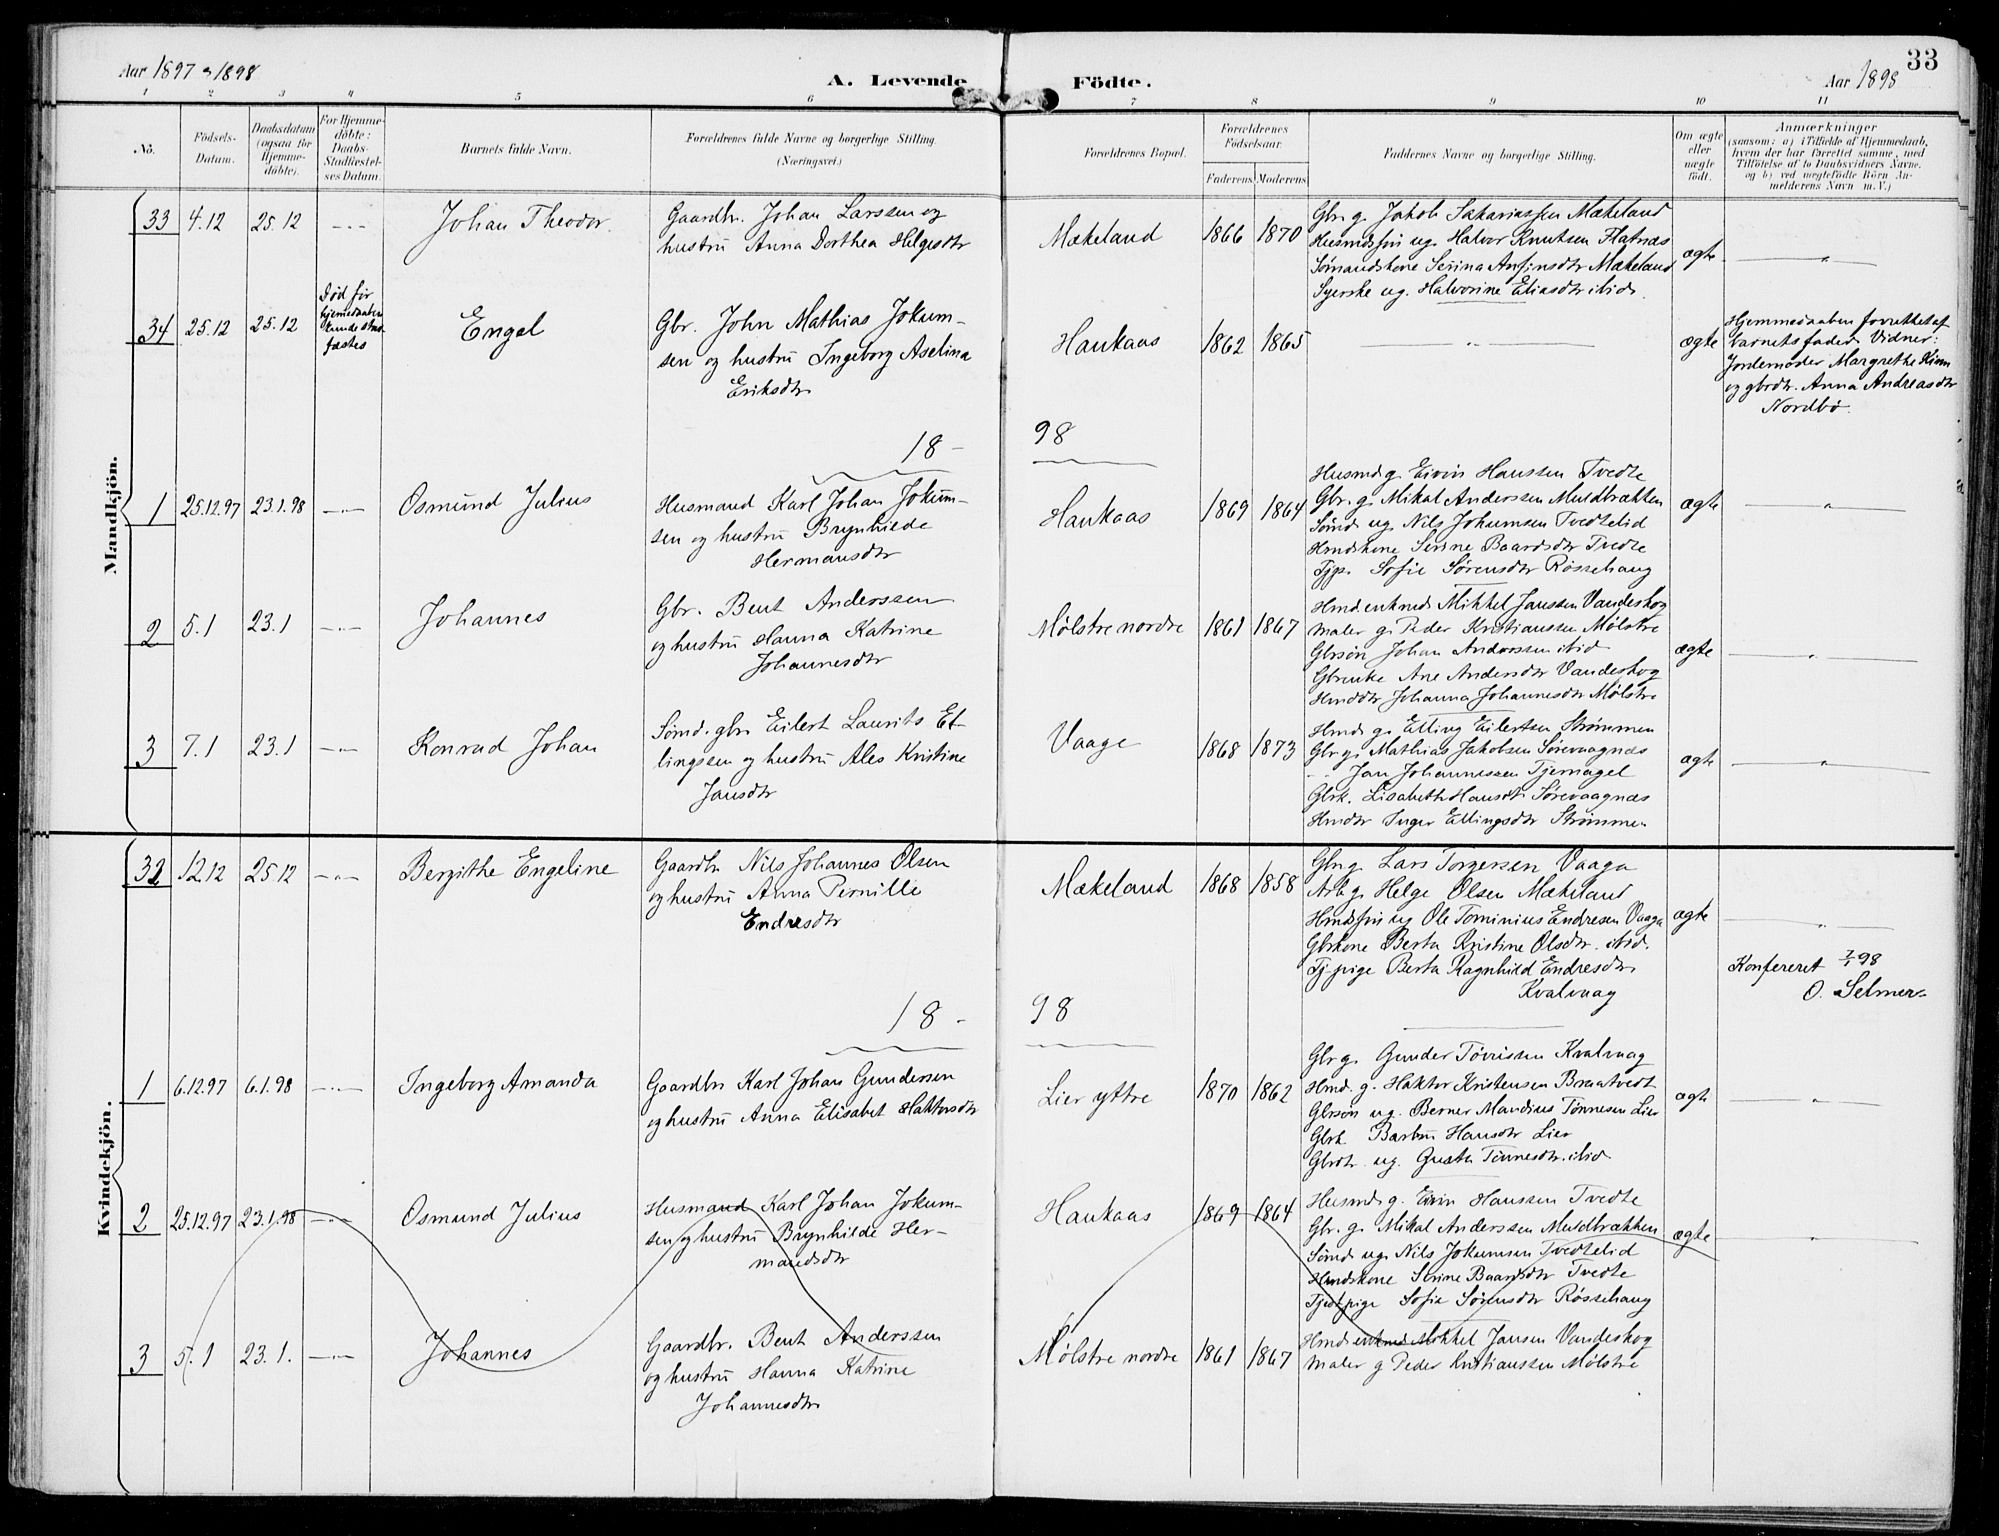 33
Aar 1897 & 1898
A. Levende
Födte.
Aar 1898
1 2 3 4 5 6 7 8 9 10 11
No.
Födsels-Datum.
Daabsdatum (ogsaa for Hjemme-döbte).
For Hjemme-döbte: Daabs-Stadfæstel-ses Datum.
Barnets fulde Navn.
Forældrenes fulde Navne og borgerlige Stilling.
(Næringsvei.)
Forældrenes Bopæl.
Forældrenes Födselsaar.
Faderens Moderens
Faddernes Navne og borgerlige Stilling.
Om ægte eller uægte födt.
Anmærkninger
(saasom: a) i Tilfælde af Hjemmedaab,
hvem der har forrettet samme, med
Tilföielse af to Daabsvidners Navne.
og b) ved uægtefödte Börn An-
melderens Navn m. V.)
Mandkjön.
33 4.12 25.12 -"- Johan Theodor.
Gaardbr. Johan Larssen og
hustru Anna Dorthea Helgesdtr
Mækeland 1866 1870
Gbr. g. Jakob Sakariassen Mækeland
Husmdsfin ug. Halvor Knutsen Flatnæs
Sømandskone Serina Anfinsdtr Mækeland
Syerske ug. Halvorine Eliasdtr ibid.
ægte "
34 25.12 25.12
Død før
hjemedaaben
kunde stad
fæstes
Engel
Gbr. John Mathias Jokum-
sen og hustru Ingeborg Aselina
Eriksdtr
Haukaas 1862 1865 " ægte
Hjemmedaaben forrettet af
barnets fader. Vidner:
Jordemoder Margrethe Kinn
og gbrdtr. Anna Andreasdtr
Nordbø.
18- 98
1 25.12.97 23.1.98 -"- Osmund Julius
Husmand Karl Johan Jokum-
sen og hustru Brynhilde
Hermansdtr
Haukaas 1869 1864
Husmd g. Eivin Hanssen Tvedte
Gbr. g. Mikal Anderssen Muldbrækken
Sømd ug. Nils Jokumsen Tvedtelid
Hmdskone Serine Baardsdtr Tvedte
Tjp. Sofie Sørensdtr Røssehaug
ægte "
2 5.1 23.1 -"- Johannes
Gbr. Bent Anderssen
og hustru Hanna Katrine
Johannesdtr
Mølstre nordre 1861 1867
Hmd. enkmd Mikkel Janssen Vandeskog
Maler g. Peder Kristianssen Mølstre
Gbrsøn Johan Anderssen ibid
Gbrenke Ane Andersdtr Vandeskog
Hmddtr Johanna Johannesdtr Mølstre
ægte "
3 7.1 23.1 -"- Konrad Johan
Sømd. gbr. Eilert Laurits El-
lingsen og hustru Ales Kristine
Jansdtr
Vaage 1868 1873
Hmd g. Elling Eilertsen Strømmen
Gbr. g. Mathias Jakobsen Sørevaagnæs
-"- Jan Johannessen Tjernagel
Gbrk. Lisabeth Hansdtr Sørevaagnæs
Hmdtr Inger Ellingsdtr Strømmen
ægte "
Kvindekjön.
32 12.12 25.12 -"- Bergithe Engeline
Gaardbr Nils Johannes Olsen
og hustru Anna Pernille
Endresdtr
Mækeland 1868 1858
Gbr. g. Lars Torgersen Vaaga
Arb. g. Helge Olsen Mækeland
Hmdsfin ug Ole Tominius Endresen Vaaga
Gbrkone Berta Kristine Olsdtr. ibid.
Tj. pige Berta Ragnhild Endresdtr
Kvalvaag
ægte "
Konfereret 7/1 98
O. Selmer.
18- 98
1 6.12.97 6.1.98 -"- Ingeborg Amanda
Gaardbr Karl Johan Gundersen
og hustru Anna Elisabet Haktorsdtr
Lier yttre 1870 1862
Gbr g. Gunder Tørrissen Kvalvaag
Hmd. g. Haktor Kristensen Braatvedt
Gbrsøn ug. Berner Mandius Tønnesen Lier
Gbrk Barbru Hansdtr Lier
Gbrdtr. ug. Gusta Tønnesdtr. ibid
ægte "
2 25.12.97 23.1.98 -"- Osmund Julius
Husmand Karl Johan Jokum-
sen og hustru Brynhilde Her-
mandsdtr
Haukaas 1869 1864
Husmd g. Eivin Hanssen Tvedte
Gbr. g. Mikal Anderssen Muldbrækken
Sømd ug. Nils Jokumsen Tvedtelid
Hmdskone Serine Baardsdtr Tvedte
Tjpige Sofie Sørensdtr Røssehaug
ægte "
3 5.1 23.1. -"- Johannes
Gaardbr. Bent Anderssen
og hustru Hanna Katrine
Johannesdtr
Mølstre nordre 1861 1867
Hmd enkmd Mikkel Jansen Vandeskog
Maler g Peder Kristianssen Mølstre